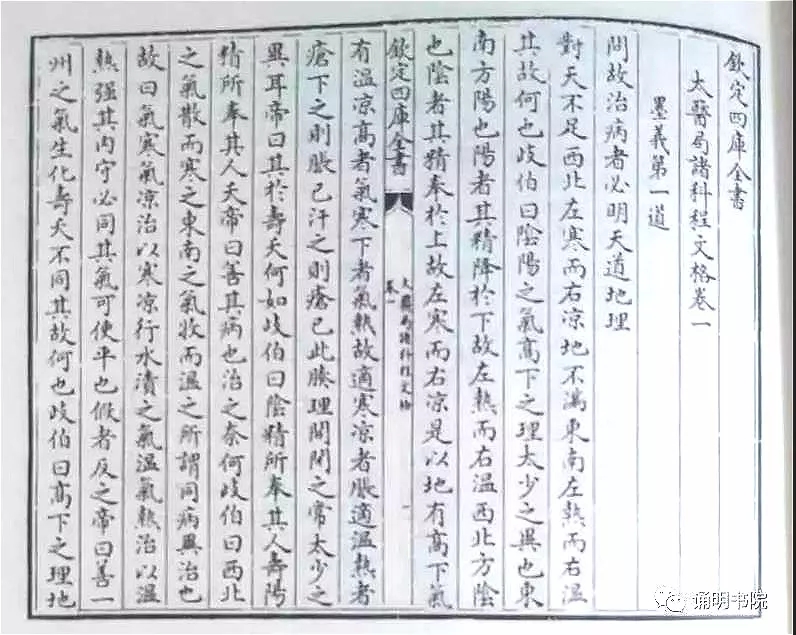 欽定四庫全書
太醫局諸科程文格卷一
墨義第一道
問故治病者必明天道地理
對天不足西北左寒而右凉地不滿東南左熱而右温
其故何也歧伯曰陰陽之氣髙下之理太少之異也東
南方陽也陽者其精降於下故左熱而右温西北方陰
也陰者其精奉於上故左寒而右凉是以地有髙下氣
欽定四庫全書
太醫局諸科程文格
卷一
一
有温凉髙者氣寒下者氣熱故適寒凉者脹適温熱者
瘡下之則脹已汗之則瘡已此腠理開閉之常太少之
異耳帝曰其於壽夭何如歧伯曰陰精所奉其人壽陽
精所奉其人夭帝曰善其病也治之奈何歧伯曰西北
之氣散而寒之東南之氣收而温之所謂同病異治也
故曰氣寒氣凉治以寒凉行水漬之氣温氣熱治以温
熱强其内守必同其氣可使平也假者反之帝曰善一
州之氣生化壽夭不同其故何也歧伯曰髙下之理地
诵明书院